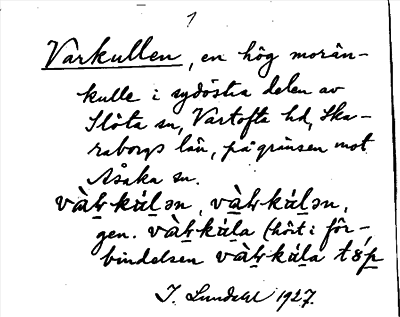 1
Varkullen, en hög morän-
kulle i sydöstra delen av
Slöta sn, Vartofta hd, Ska-
raborgs län, på gränsen mot
Åsaka sn.
vàr̥kúl̥ən, vàr̥kúl̥ən,
gen. vàr̥kúl̥a (hört i för-
bindelsen vàr̥kúl̥a
I. Lundahl 1927.